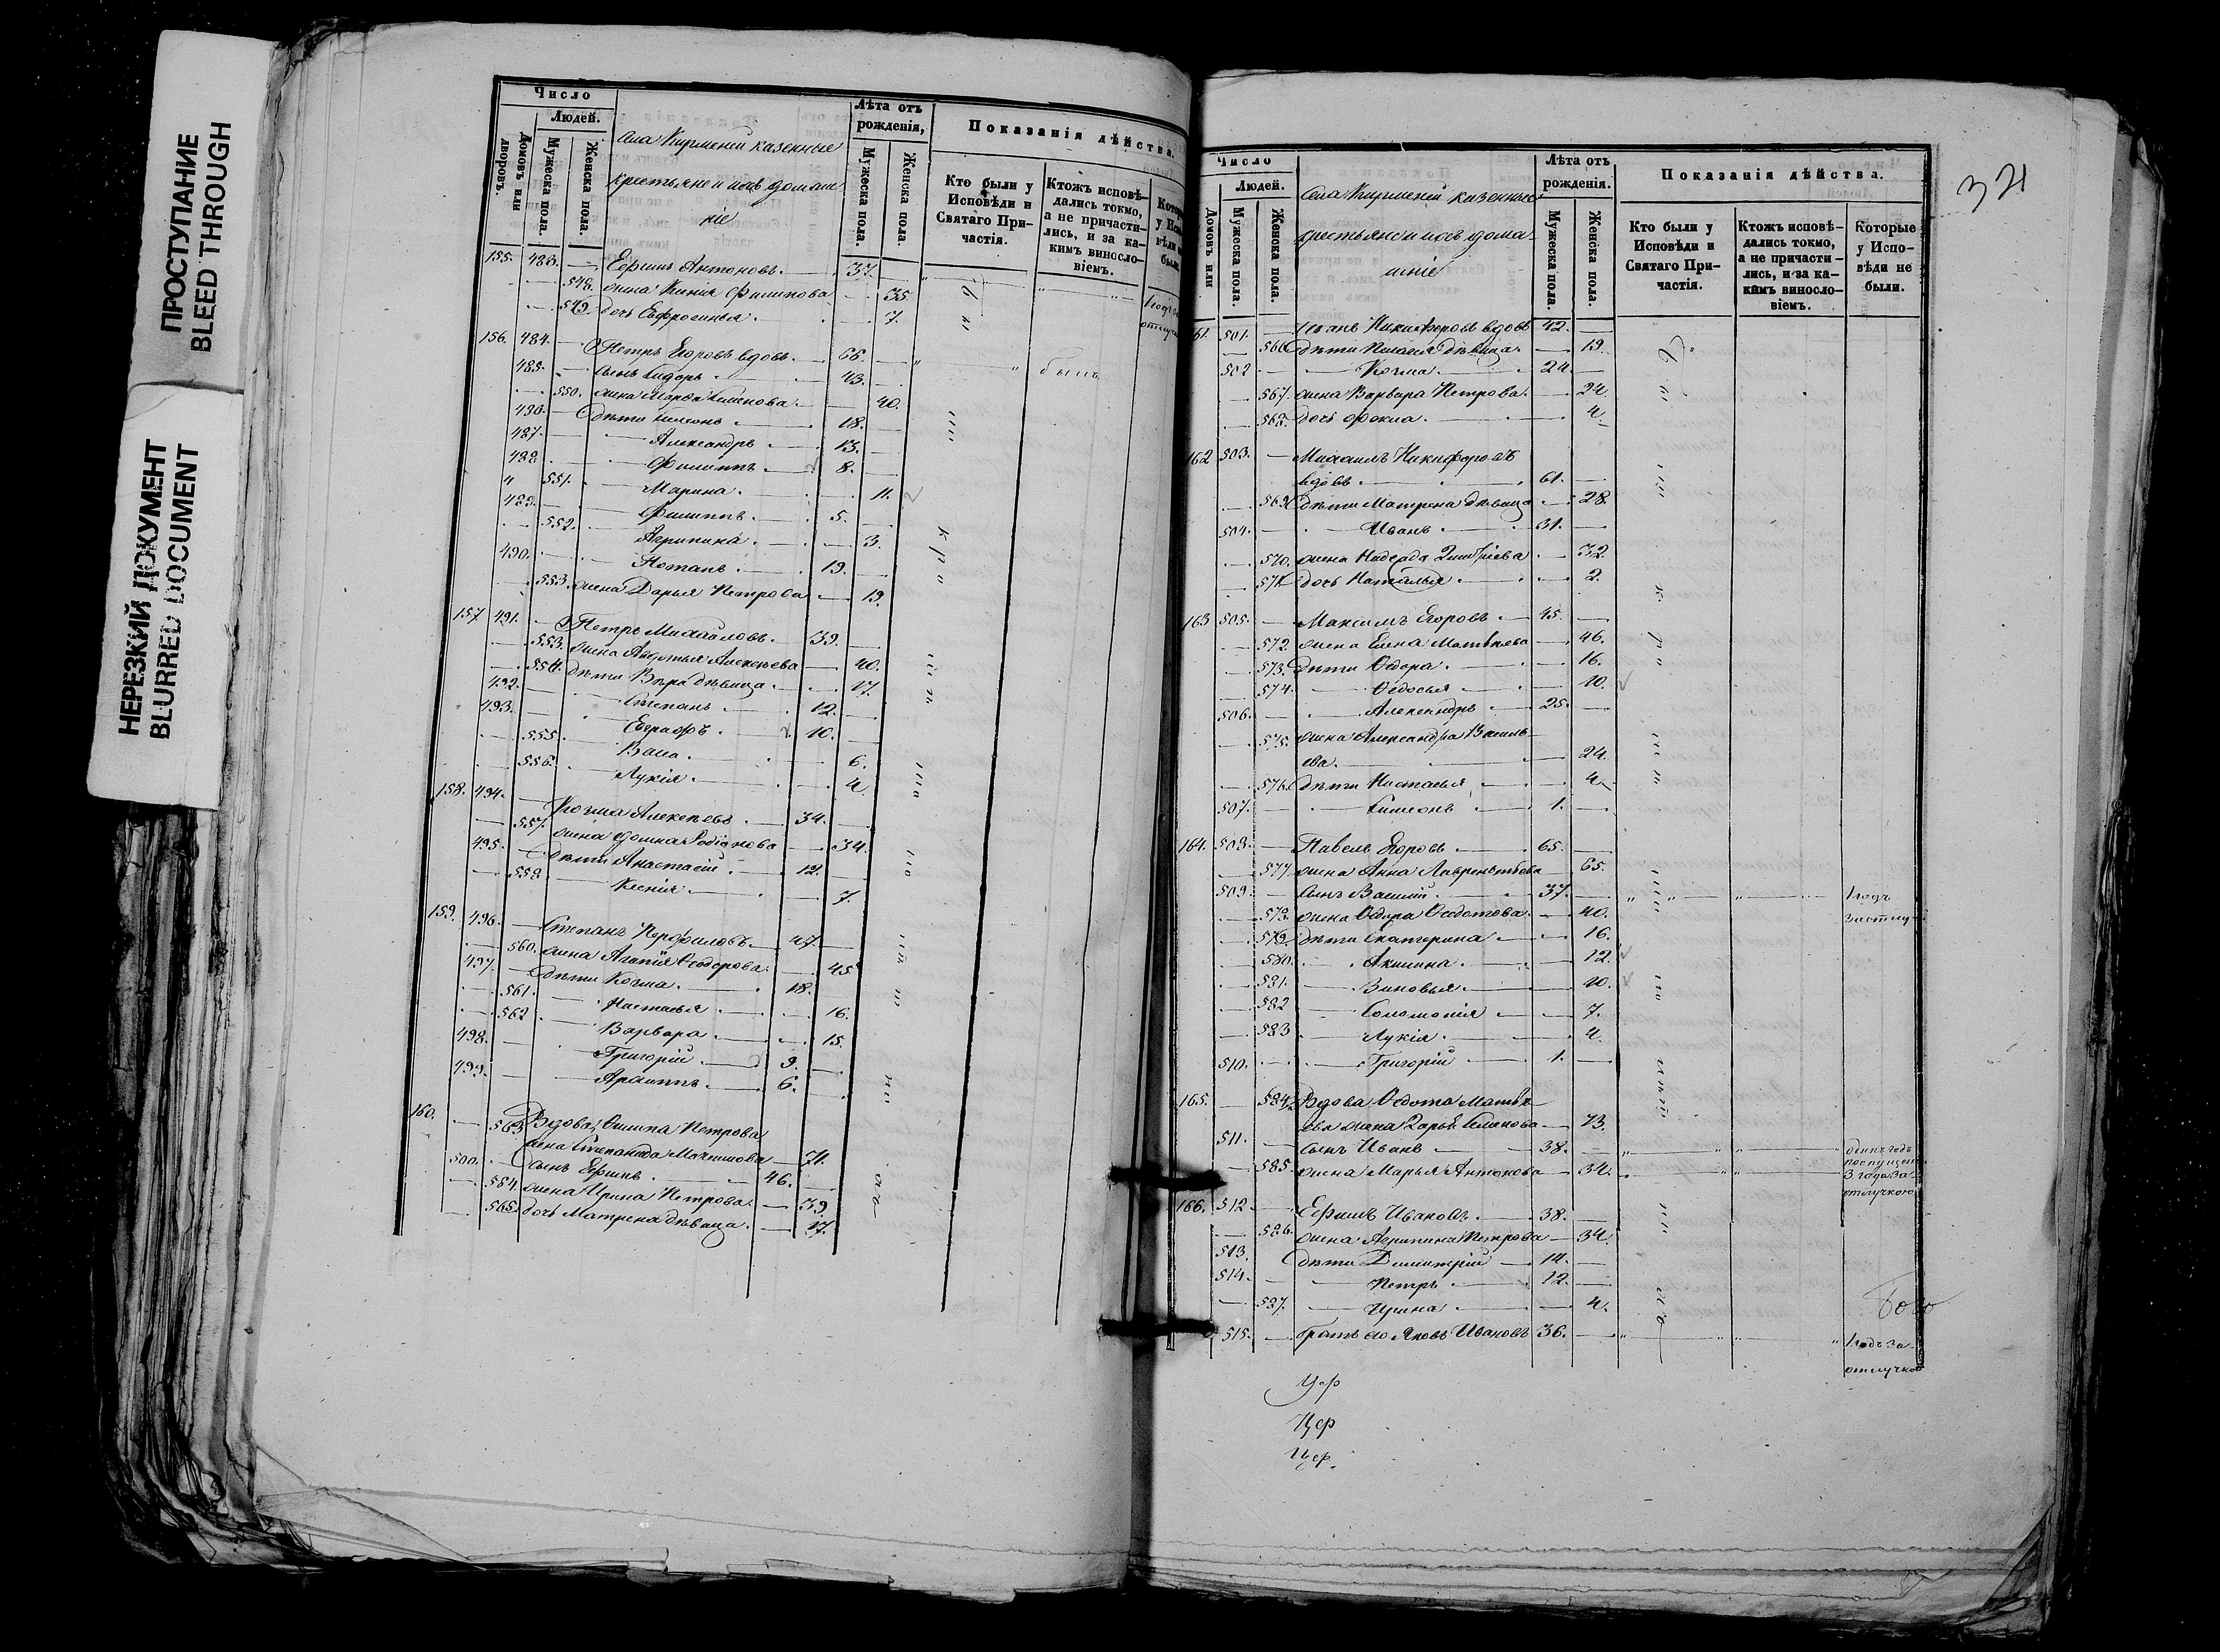 ПРОСТУПАНИЕ
BLEED THROUGH
НЕРЕЗКИЙ ДОКУМЕНТ
BLURRED DOCUMENT
Число
Людей.
Домовъ или дворовъ.
Мужеска пола.
Женска пола.
Села Кирменей казенные
крестьяне и ихъ домаш
ніе
Лѣта отъ рожденія,
Мужеска пола.
Женска пола.
Показанія дѣйства.
Кто были у Исповѣди и Святаго Причастія.
Ктожъ исповѣдались токмо, а не причастились, и за какимъ винословіемъ.
155. 483. Ефимъ Антоновъ 37.
548. жена Ксенія Филипова 35
549. дочь Евфросинья 7.
156. 484. Петръ Егоровъ вдовъ 66.
485. сынъ Сидоръ 43.
550. жена Марѳа Семенова 40.
486. дѣти Симеонъ 18.
487. Александръ 13.
488 Филиппъ 8.
551. Марина 11.
489. Филиппъ 5.
552. Агрипина 3.
490. Потапъ 19.
553. жена Дарья Петрова 19.
157 491. Петръ Михайловъ 39.
553. жена Авдотья Алексѣева 40.
554. дѣти Вѣра дѣвица 17.
492. Степанъ 12.
493. Евграфъ 10.
555. Васса 6.
556. Лукія 4
158. 494. Козма Алексѣевъ 34.
557. жена Домна Родіонова 34.
495. дѣти Анастасій 12.
558 Ксенія 7.
159. 496. Степанъ Перфиловъ 47
560. жена Агапія Ѳеодорова 45
497. дѣти Козма 18.
561. Настасья 16.
562 Варвара 15.
498. Григорій 9.
499. Архиппъ 6.
160. 563 Вдова Петрова
жена Степанида 71.
500. сынъ Ефимъ 46.
564. жена Ирина Петрова 39
565. дочь Матрена дѣвица 17.
321
Число
Людей.
Домовъ или
Мужеска пола.
Женска пола.
Села Кирменей казенные
крестьяне и ихъ дома
шніе
Лѣта отъ рожденія.
Мужеска пола.
Женска пола.
Показанія дѣйства.
Кто были у Исповѣди и Святаго Причастія.
Ктожъ исповѣдались токмо, а не причастились, и за какимъ винословіемъ.
Которые у Исповѣди не были.
61. 501. Никифоровъ вдовъ 42.
566 дѣти дѣвица 19.
502 Козма 24.
567. жена Варвара Петрова 24
568. дочь Фокла 4.
162 503. Михаилъ Никифоровъ
вдовъ 61.
569 дѣти Матрена дѣвица 28
504. Иванъ 31.
570. жена Надежда Димтріева 32.
571 дочь Наталья 2.
163 505. Максимъ Егоровъ 45.
572. жена Елена Матвѣева 46.
573. дѣти Ѳедора 16.
574. Ѳедосья 10.
506. Александръ 25.
575. жена Александра Василь
ева 24.
576. дѣти Настасья 4
507. Симеонъ 1.
164. 508. Павелъ Егоровъ 65.
577 жена Анна Лаврентьева 65.
509. сынъ Василій 37. 1 годъ
578. жена Ѳедора Ѳедотова 40. за отлу
579. дѣти Екатерина 16.
580. Акилина 12.
581. Зиновья 10.
582 Соломонія 7.
583 Лукія 4.
510. Григорій 1.
165. 584. Вдова Ѳедота Матвѣ
ева жена Дарья Семенова 73.
511. сынъ Иванъ 38. одинъ годъ
585. жена Марья Антонова 34. 3 года за
отлучкою
166. 512 Ефимъ Ивановъ 38.
586. жена Агрипина Петрова 34.
513. дѣти Димитрій 14.
514. Петръ 12.
587. Ирина 4.
515. братъ его Яковъ Ивановъ 36. 1 годъ за
отлучкою
Цер
Цер
Цер.